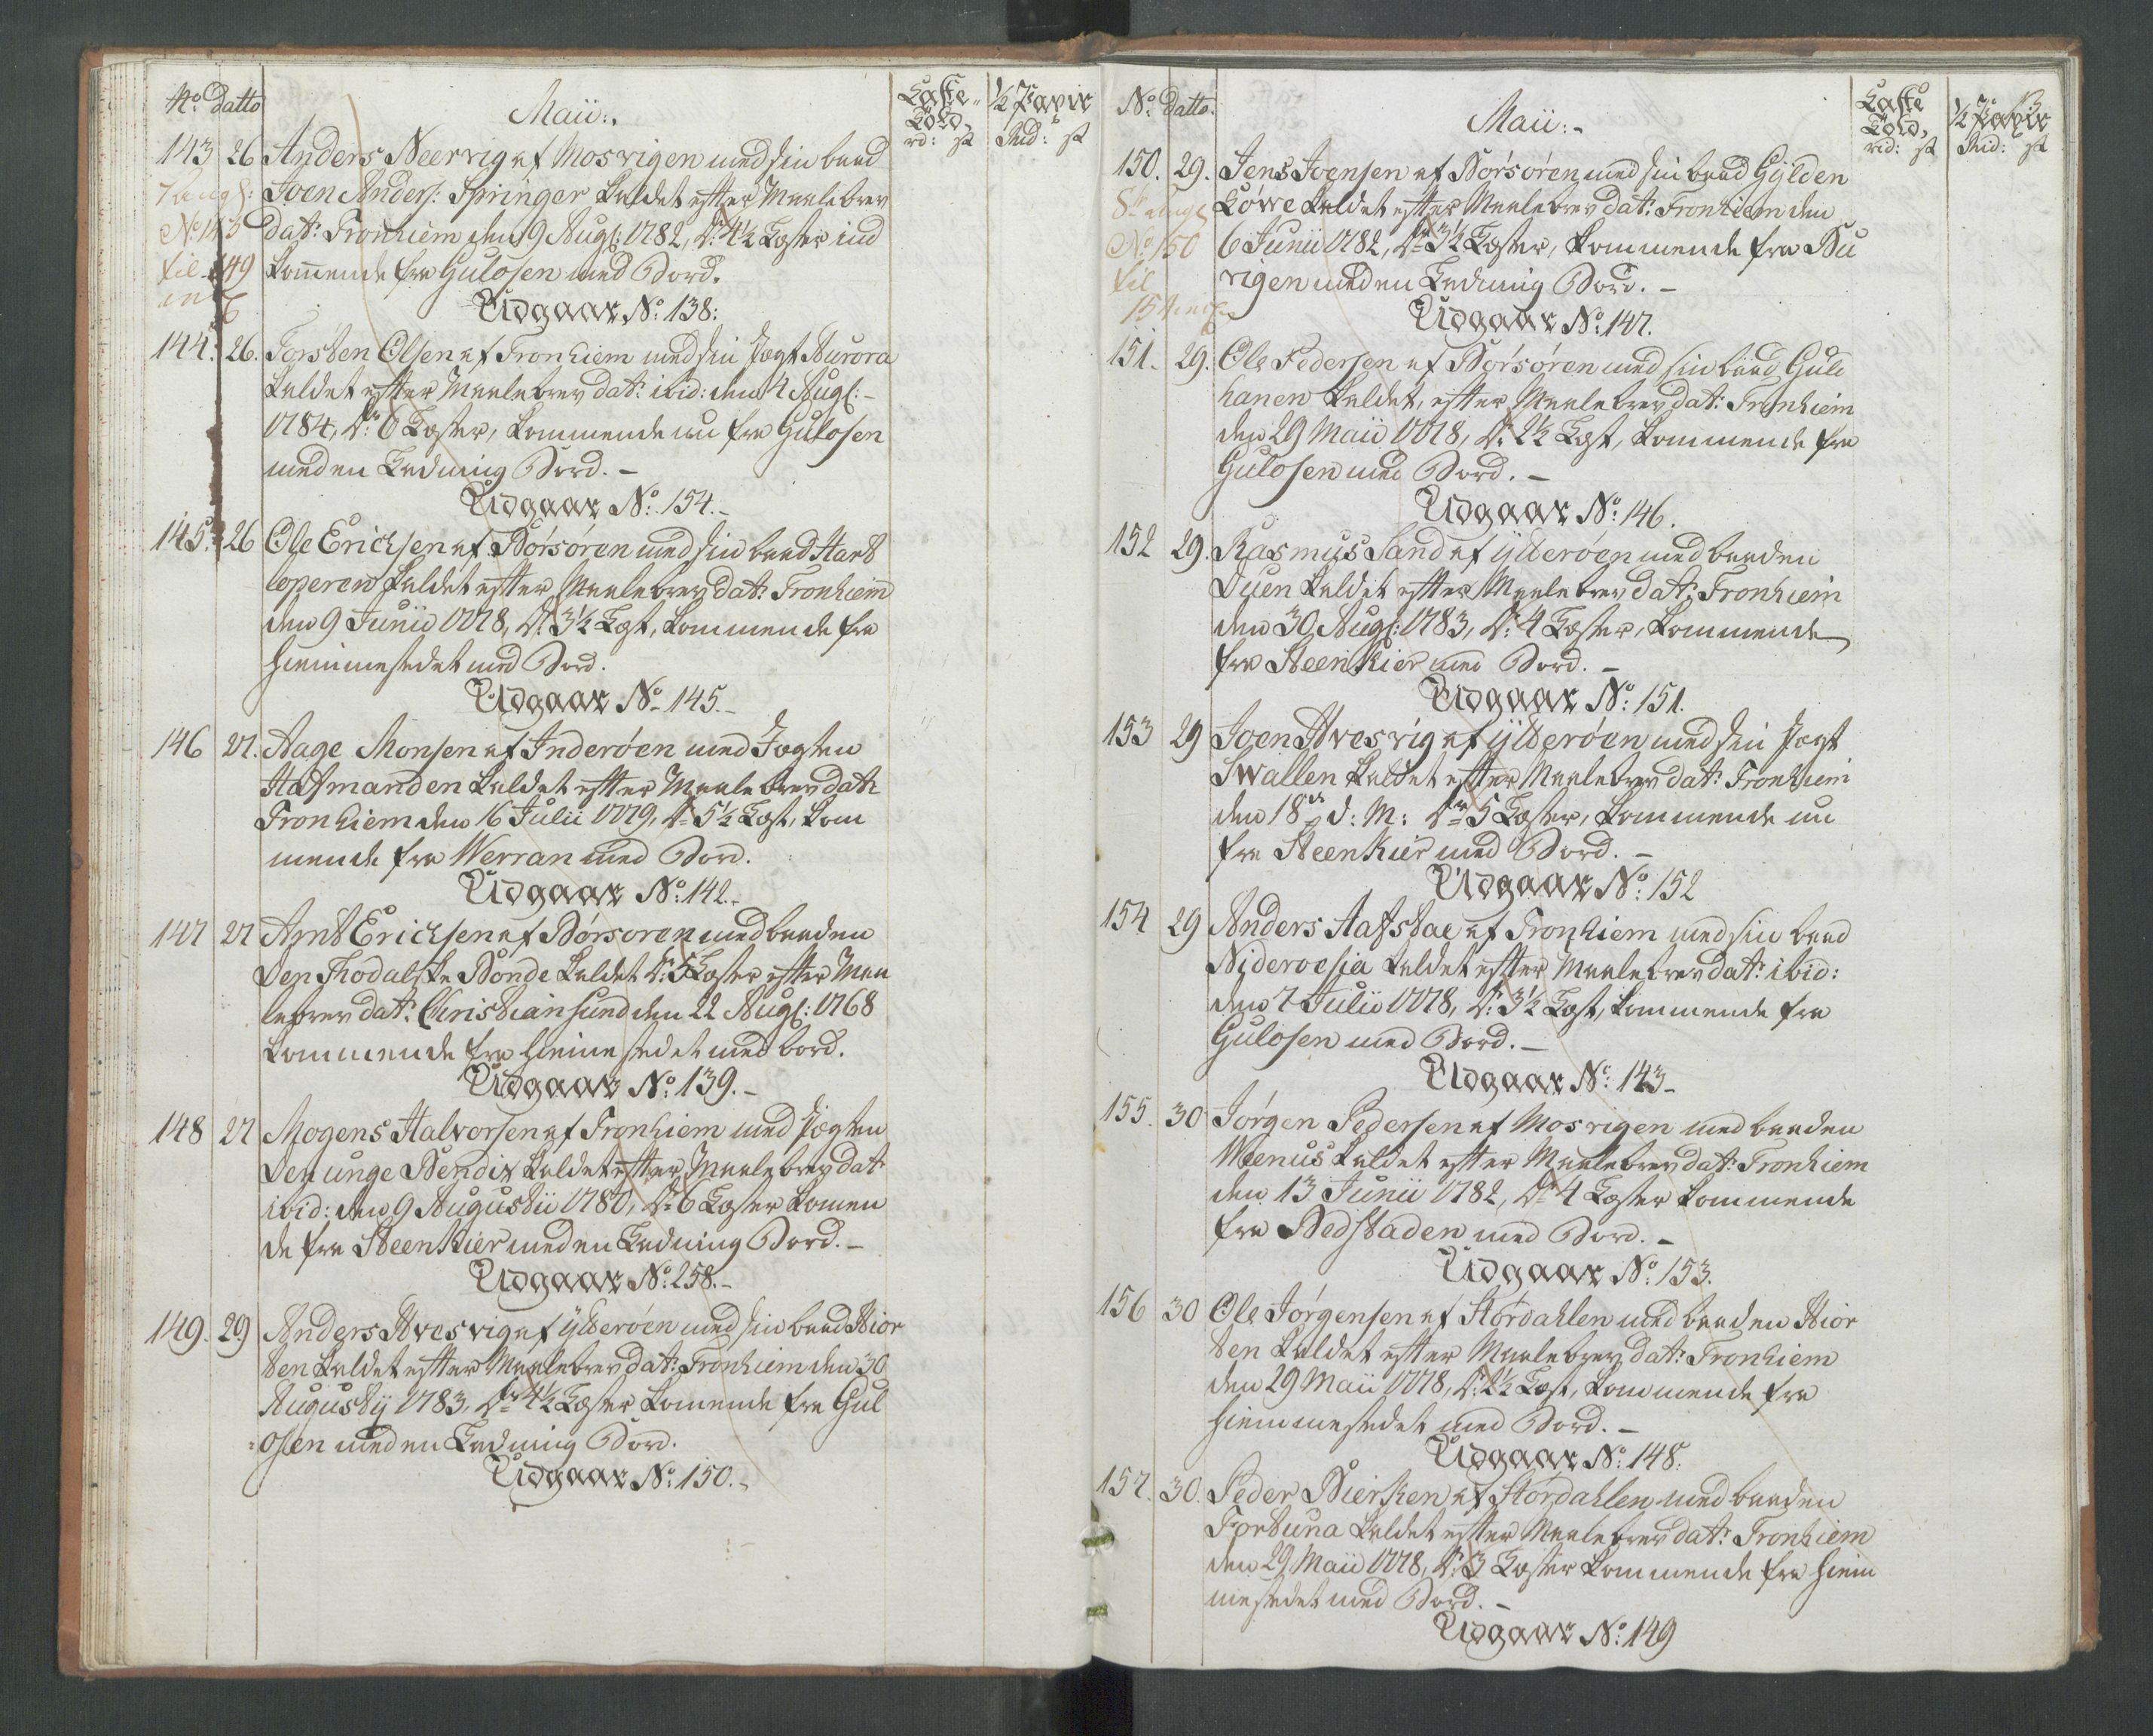 No. datto
Maii:.
Læste Told,
½ Favir
rd: s
Rid: s
143 26 Anders Neervig af Mosvigen med sin baad
Joen Anders: Springer kaldet efter Maalebrev
dat: Tronhiem den 9 Augs: 1782, Dr: 4½ Læster ind
kommende fra Gulosen med Bord.
No 143
til 149
Udgaar No: 138:
144. 26. Torsten Olsen af Tronhiem med sin Jagt Aurora
kaldet efter Maalebrev dat: ibid: den 4 Augs:-
1784, Dr: 6 Læster, kommende nu fra Gulosen
med en Ladning Bord.-
Udgaar No: 154.-
145. 26 Ole Erichsen af Börsören med sin baad Hart
loperen kaldet efter Maalebrev dat: Tronhiem
den 9 Junii 1778, Dr: 3½ Læst, kommende fra
hiemmestedet med Bord.
Udgaar No. 145.-
146 27. Aage Monsen af Inderöen med Jagten
Hafmanden kaldet efter Maalebrev dat:
Tronhiem den 16 Julii 1779, Dr: 5½ Læst, kom
mende fra Werran med Bord.
Udgaar No: 142.-
147 27 Arnt Erichsen af Börsoren med baaden
Den Thodalske Bonde kaldet Dr: 5 Læster efter Maa
lebrev dat: Christiansund den 22 Augs: 1768
kommende fra hiemestedet med bord.
Udgaar No: 139.-
148 27 Mogens Halvorsen af Tronhiem med Jagten
Den unge Bendix kaldet efter Maalebrev dat:
ibid: den 9 Augustii 1780, Dr: 6 Læster komen
de fra Steenkier med en Ladning Bord.-
Udgaar No: 258.-
149. 29 Anders Hvesvig af ytteröen med sin baad Hior
ten kaldet efter Maalebrev dat: Tronhiem den 30
Augustij 1783, Dr: 4½ Læster komende fra Gul
osen med en Ladning Bord.
Udgaar No: 150.-
No. datto.
Maii:-
Læste Told,
½ Favir
rid: s
Rid: s
150. 29. Jens Joensen af Börsören med sin baad Gylden
Löwe kaldet efter Maalebrev dat: Tronhiem den
6 Junii 1782, Dr: 3½ Læster, kommende fra Bu
vigen med en Ladning Bord.-
No 150
til
154
Udgaar No: 147.
151. 29. Ole Pedersen af Börsören med sin baad Guld
hanen kaldet, efter Maalebrev dat: Tronhiem
den 29 Maii 1778, Dr: 2½ Læst, kommende fra
Gulosen med Bord.-
Udgaar No: 146.
152 29. Rasmus Sand af ytteröen med baaden
Duen kaldet efter Maalebrev dat: Tronhiem
den 30 Augs: 1783, Dr: 4 Læster, kommende
fra Steenkier med Bord.-
Udgaar No: 151.
153 29 Joen Hvesvig af ytteröen med sin Jagt
Swallen kaldet efter Maalebrev dat: Tronhiem
den 18de d: M: Dr: 5 Læster, kommende nu
fra Steenkier med Bord.-
Udgaar No: 152
154 29 Anders Hafstae af Tronhiem med sin baad
Niderocsia kaldet efter Maalebrev dat: ibid:
den 7 Julii 1778, Dr: 3½ Læst, kommende fra
Gulosen med Bord.-
Udgaar No: 143-
155. 30 Jörgen Pedersen af Mosvigen med baaden
Wenus kaldet efter Maalebrev dat: Tronhiem
den 13 Junii 1782, Dr: 4 Læster kommende
fra Bedstaden med Bord.-
Udgaar No: 153.
156 30 Ole Jörgensen af Stördahlen med baaden Hior
ten kaldet efter Maalebrev dat: Tronhiem
den 29 Maii 1778, Dr: 2½ Læst, kommende fra
hiemmestedet med Bord.-
Udgaar No: 148.
157. 30. Peder Bierken af Stördahlen med baaden
Fortuna kaldet efter Maalebrev dat: Tronhiem
den 29 Maii 1778, Dr: 3 Læster kommende fra hiem
mestedet med Bord.-
Udgaar No: 149